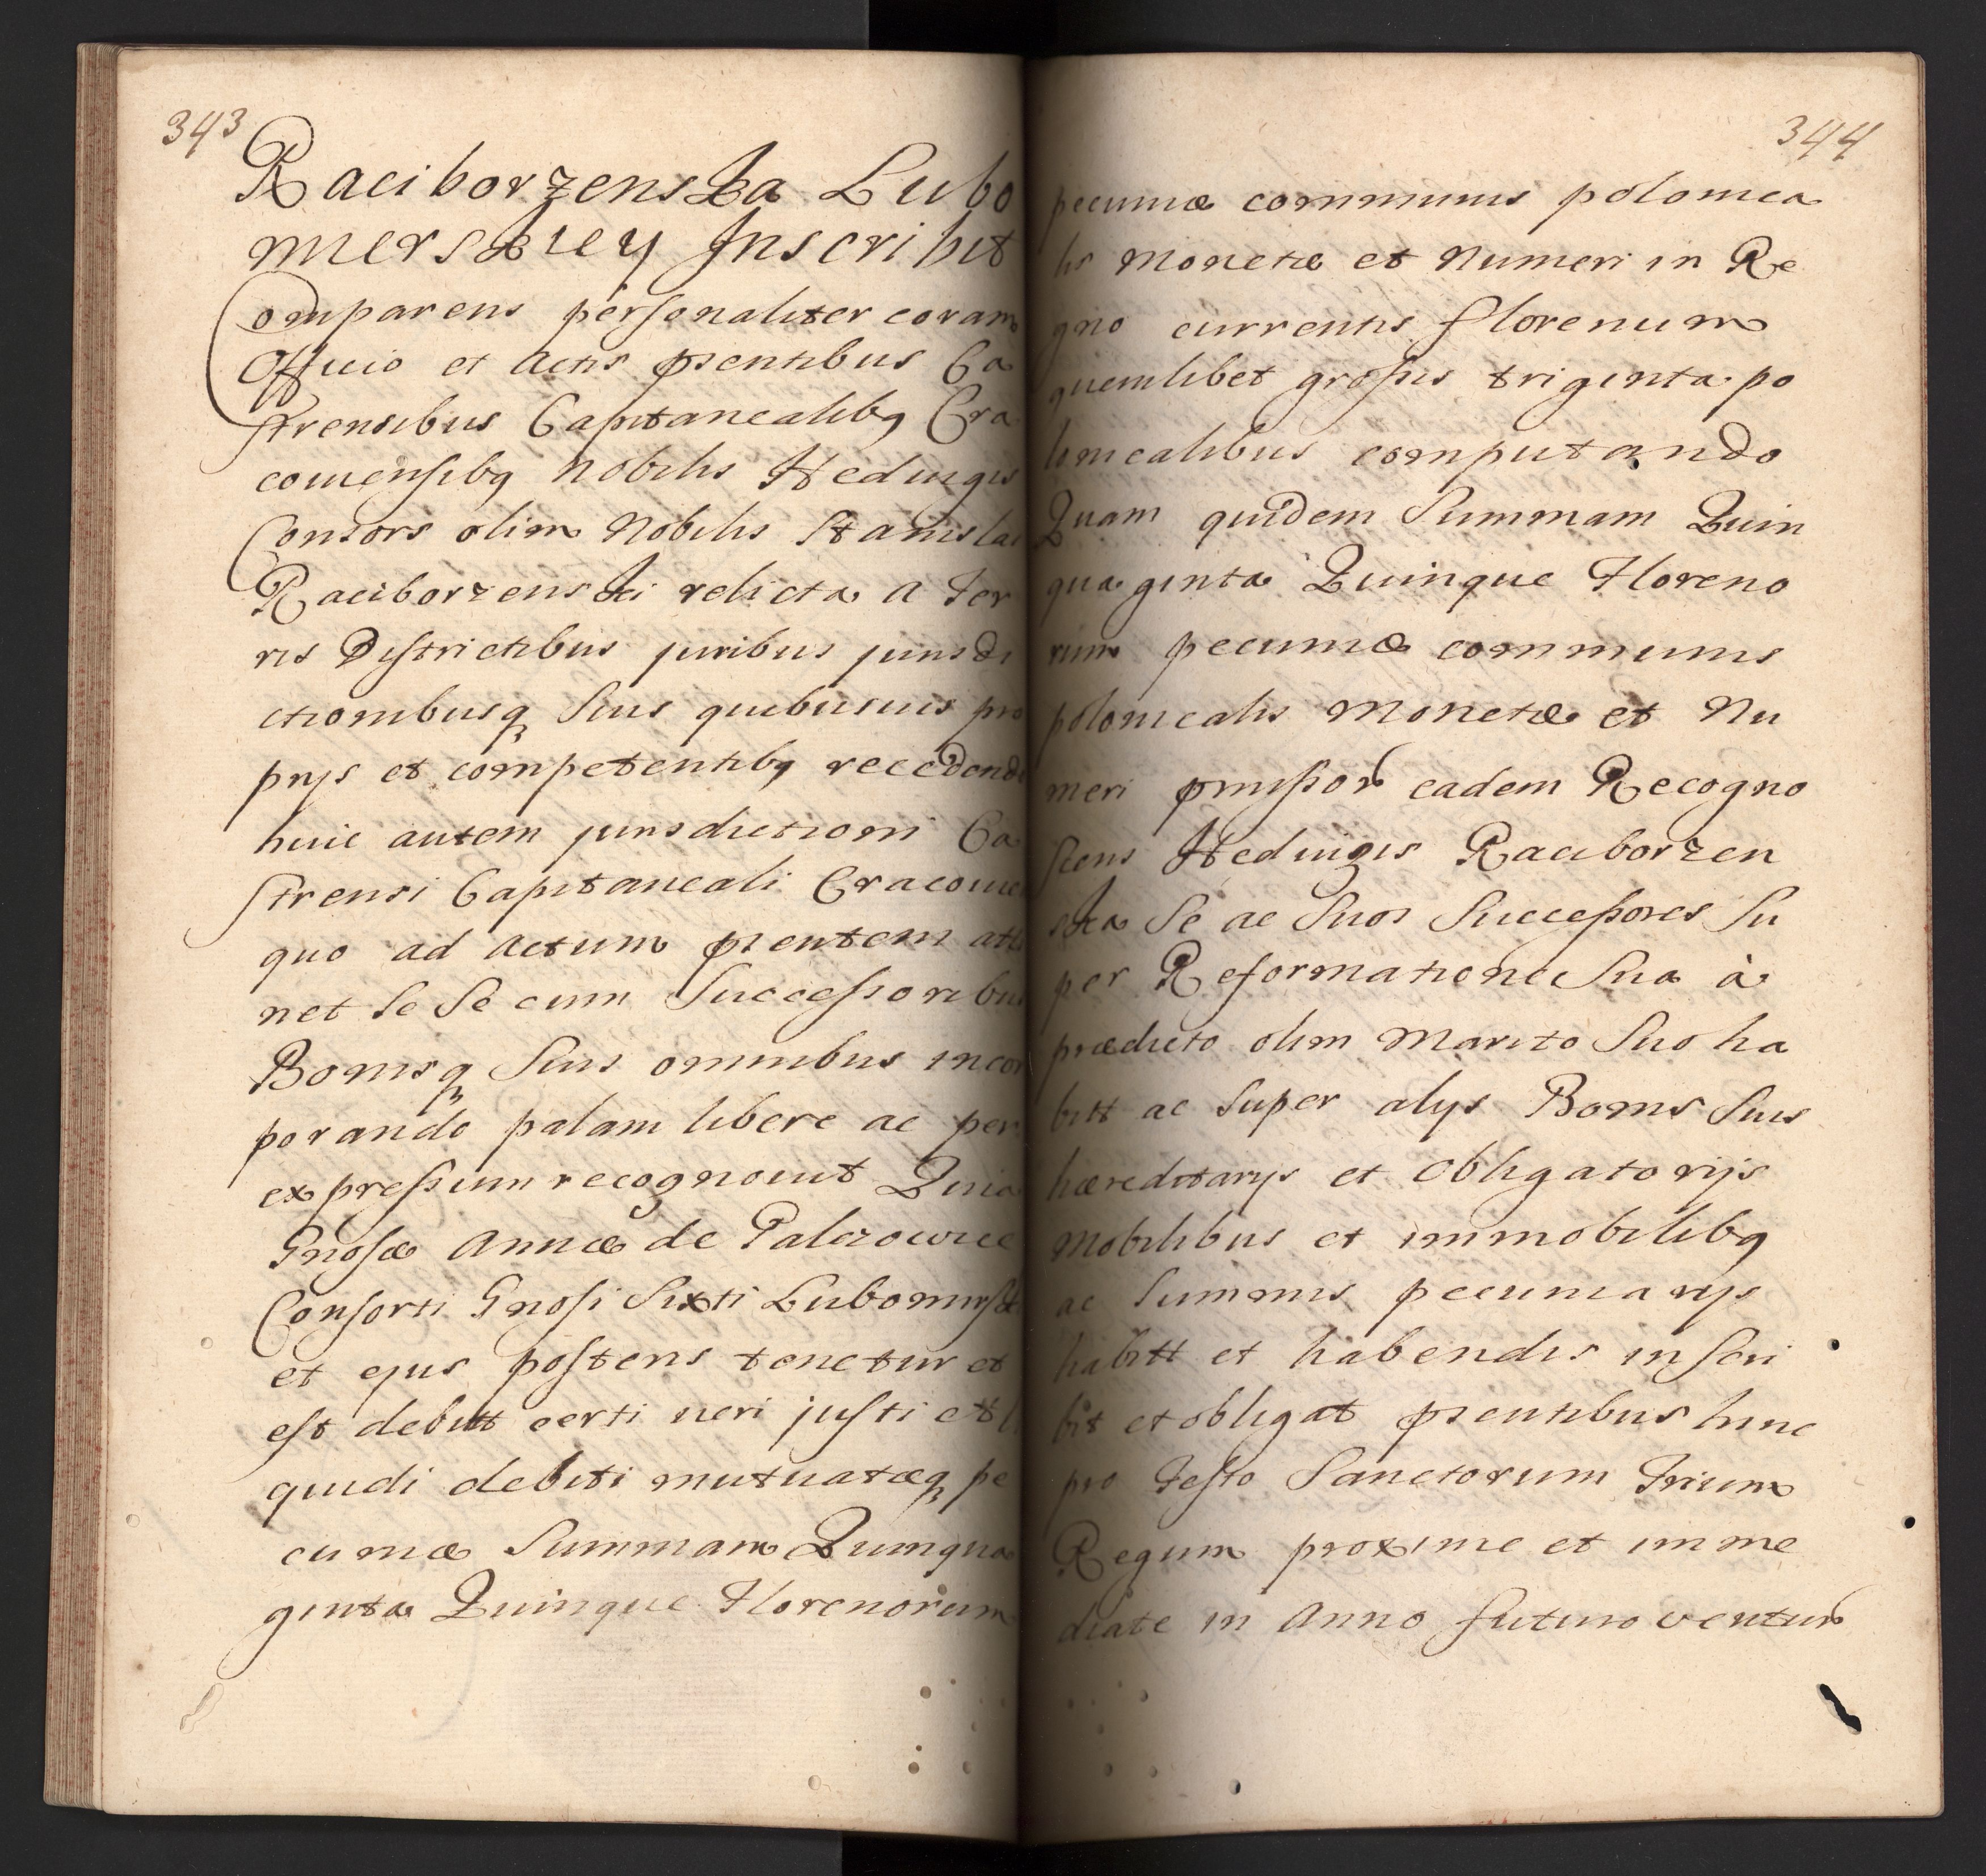 343
Raciborzenska Lubo
merskiey Inscribit
Comparens personaliter coram
Officio et Actis pñentibus Ca
strensibus Capitanealibq Cra
couiensibq Nobilis Heduigis
Consors olim Nobilis Stanislai
Raciborzenski relicta a Ter
ris Districtibus juribus jurisdi
ctionibusq Suis quibusuis pro
prijs et competentibq recedendo
huic autem jurisdictioni Ca
strensi Capitaneali Cracouien
quo ad actum pñentem atti
net Se Se cum Successoribus
Bonisq Suis omnibus incor
porando palam libere ac per
expressum recognouit Quia
Gnosæ Annæ de Palczowice
Consorti Gnosi Sixti Lubomirski
et ejus posteris tenetur et
est debitt certi ueri justi et li
quidi debiti mutuatæq pe
cuniæ Summam Quinqua
ginta Quinque Florenorum
344
pecuniæ communis polonica
lis Monetæ et Numeri in Re
gno currentis florenum
quemlibet grossis triginta po
lonicalibus computando
Quam quidem Summam Quin
quaginta Quinque Floreno
rum pecuniæ communis
polonicalis Monetæ et Nu
meri pmissor eadem Recogno
scens Heduigis Raciborzen
ska Se ac Suos Successores Su
per Reformatione Sua à
prædicto olim Marito Suo ha
bitt ac Super alijs Bonis Suis
hæreditarijs et Obligatorijs
Mobilibus et immobilibq
ac Summis pecuniarijs
habitt et habendis inscri
bit et obligat pñentibus hinc
pro Festo Sanctorum Trium
Regum proxime et imme
diate in Anno futuro ventur